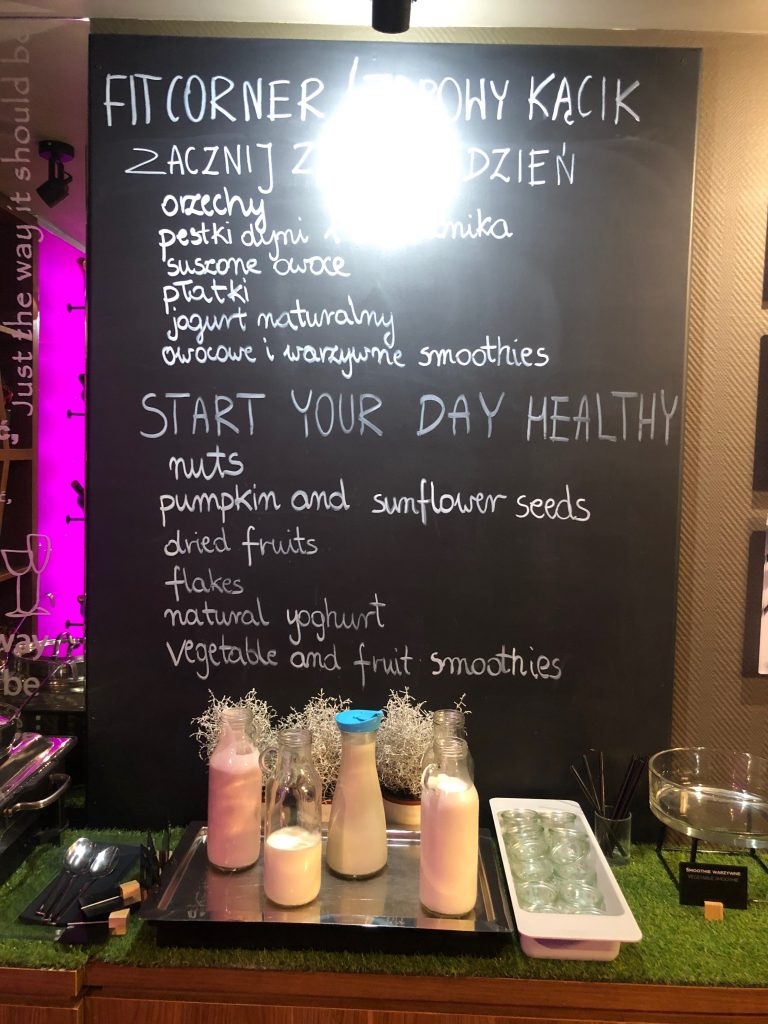 FIT CORNER / KĄCIK
ZACZNIJ DZIEŃ
orzechy
pestki dyni
suszone owoce
płatki
jogurt naturalny
owocowe i warzywne smoothies
START YOUR DAY HEALTHY
nuts
pumpkin and sunflower seeds
dried fruits
flakes
natural yoghurt
vegetable and fruit smoothies
Just the way it should be
way
be
SMOOTHIE WARZYWNE
VEGETABLE SMOOTHIE